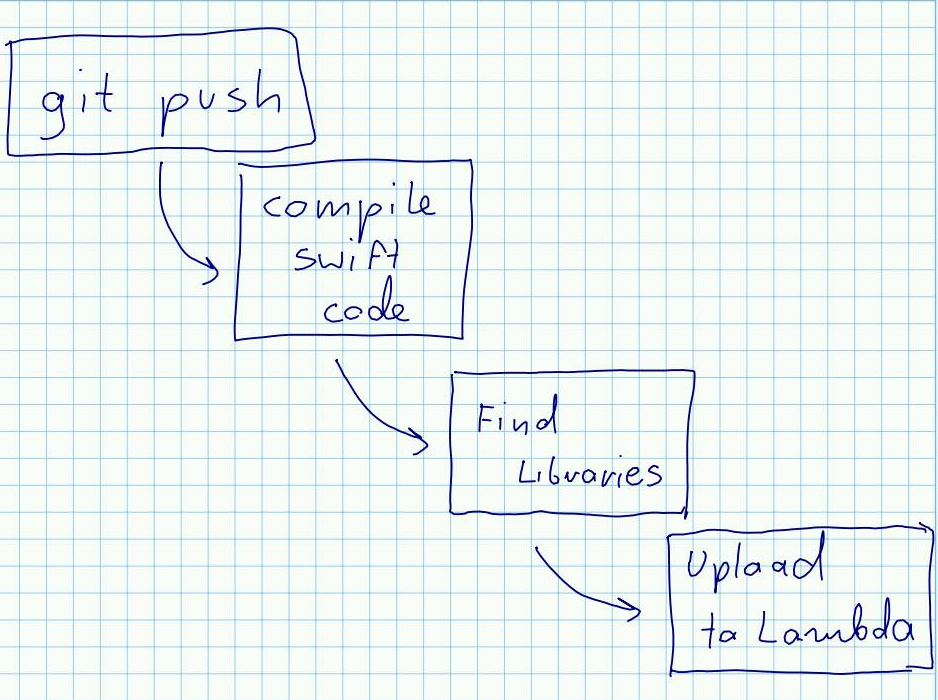 git push
compile
swift
code
Find
Libraries
Upload
to Lambda